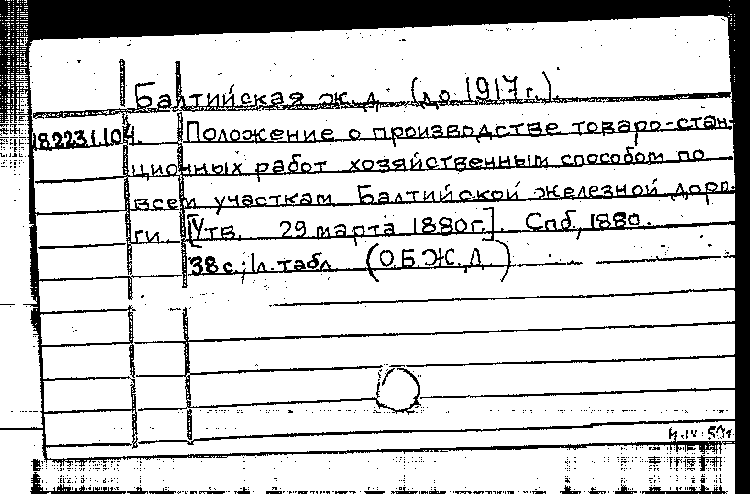 Балтийская ж. д. (до 1917 г.).
18.223.1.104. Положение о производстве товаро-стан-
ционных работ хозяйственным способом по
всем участкам Балтийской железной доро-
ги. [Утв. 29 марта 1880 г.]. Спб, 1880.
38 с.; 1 л. табл. (О.Б.Ж.Д.)